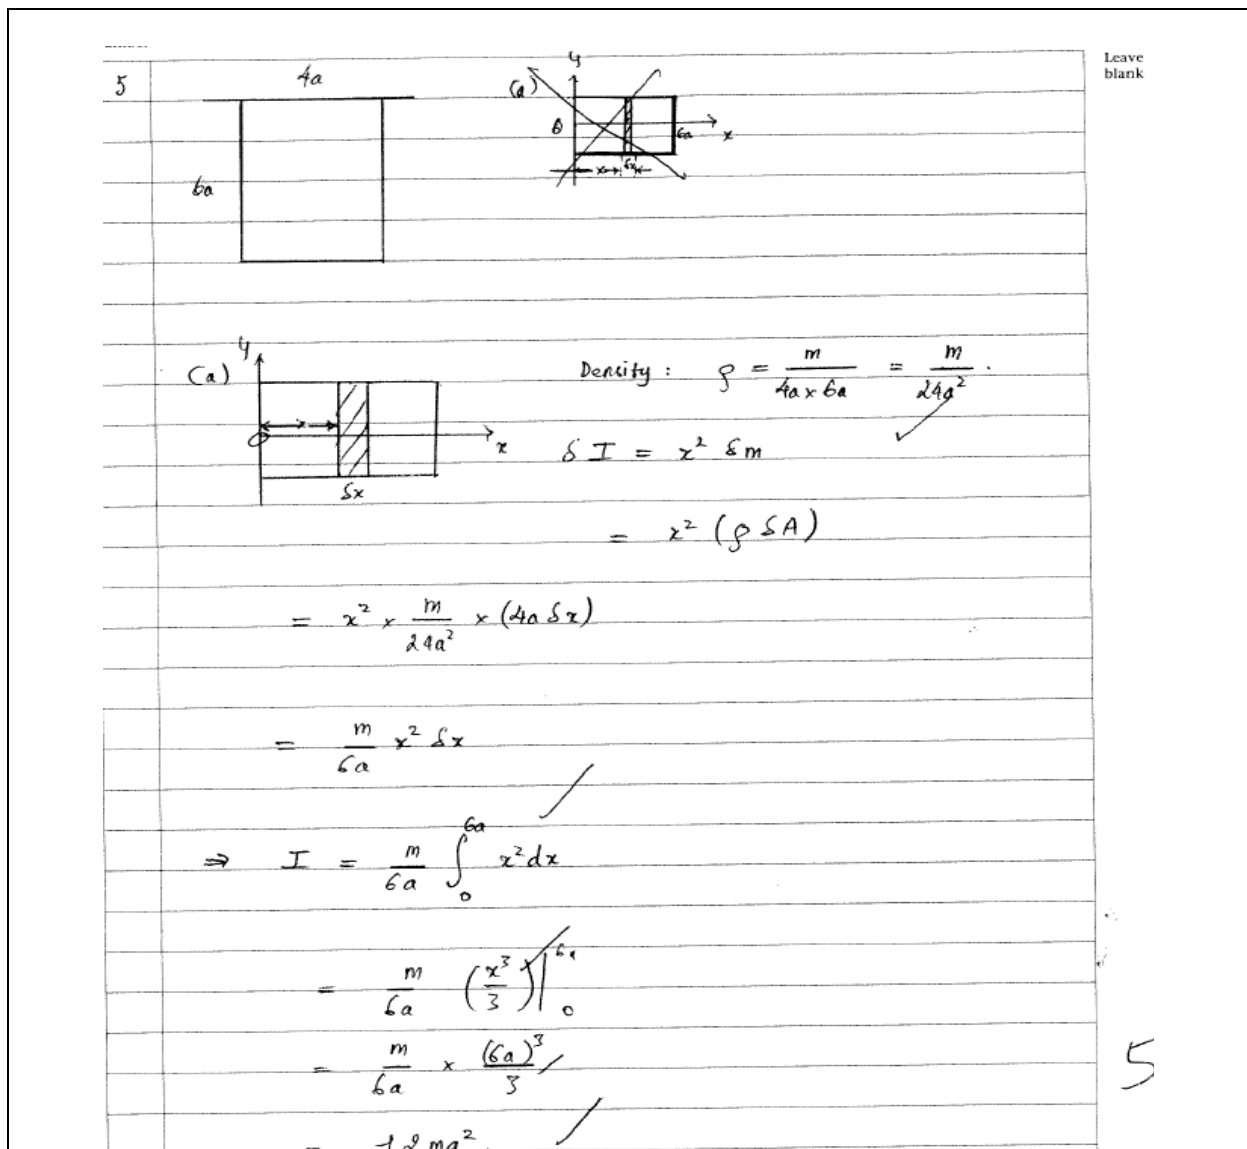 Leave
blank
5
4a
(a)
y
6a
x
x
δx
6a
(a)
y
x
O
x
δx
Density : ρ = m / (4a × 6a) = m / 24a² .
δI = x² δm
= x² (ρ δA)
= x² × m / 24a² × (4a δx)
= m / 6a x² δx
⇒ I = m / 6a ∫₀⁶ᵃ x² dx
= m / 6a (x³ / 3) |₀⁶ᵃ
= m / 6a × (6a)³ / 3
5
= 12 ma² .